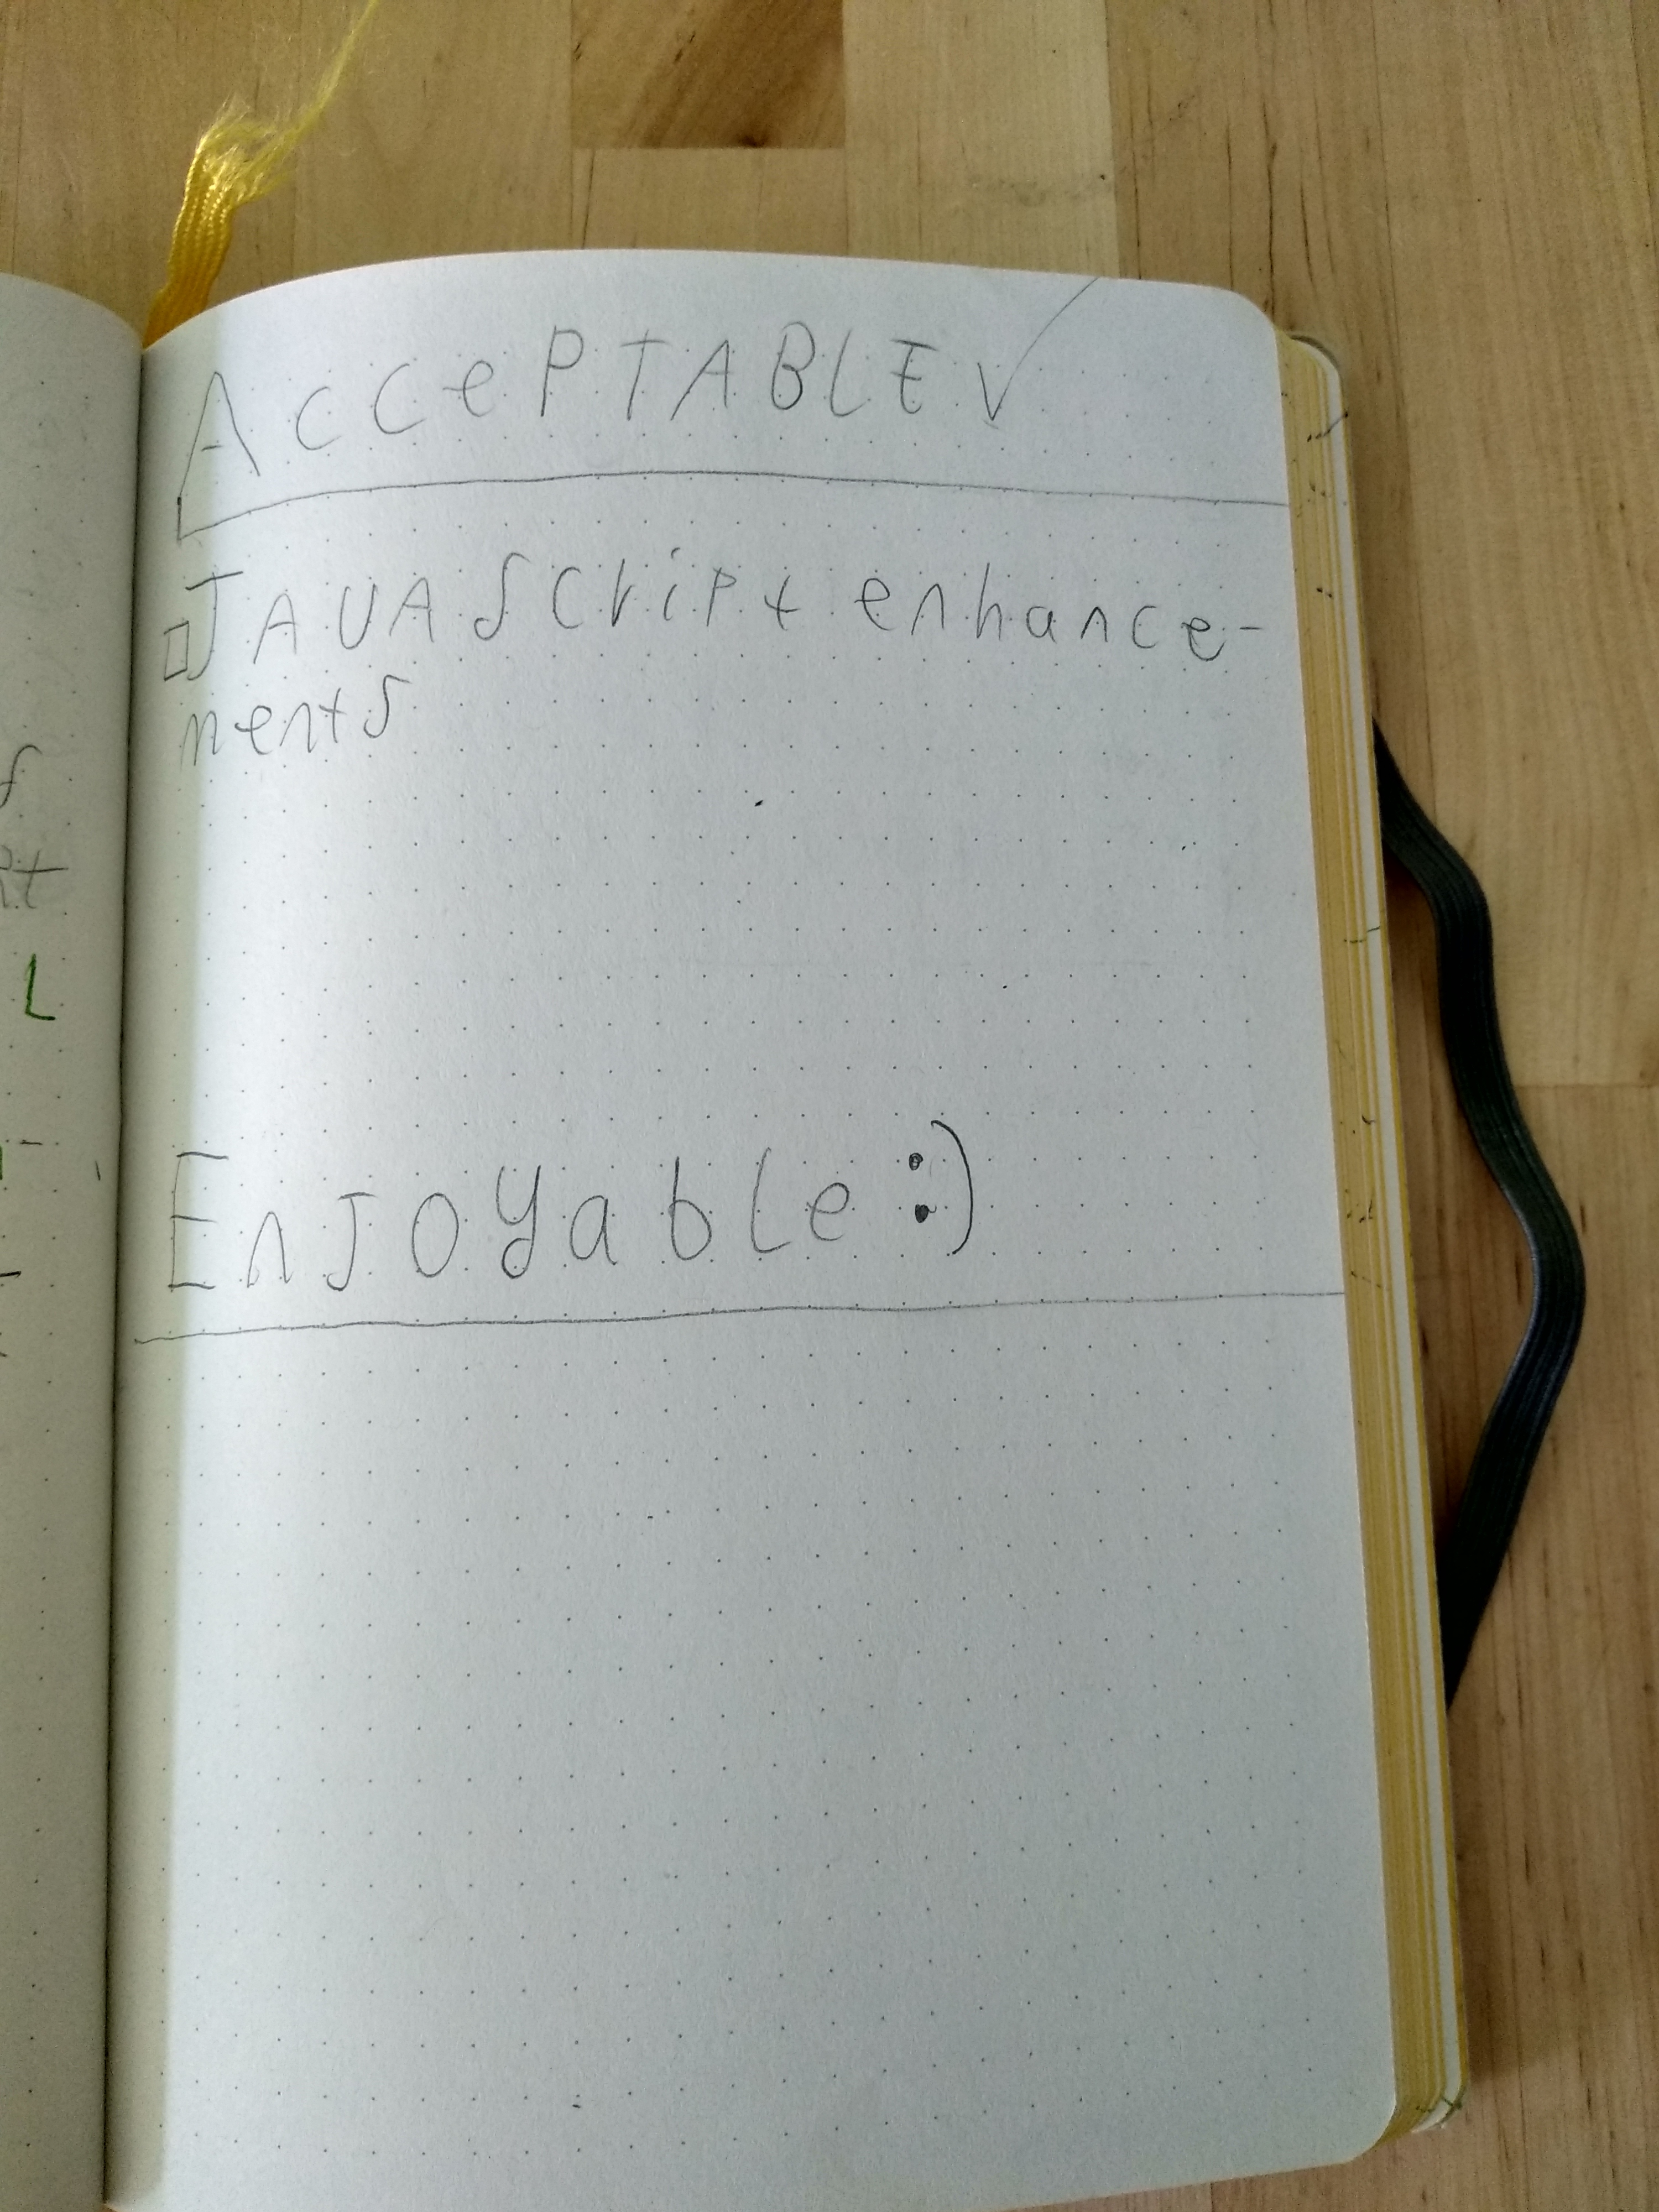 AccePTABLE ✓
□ JAVAScript enhance-
ments
EnJoyable :)
L